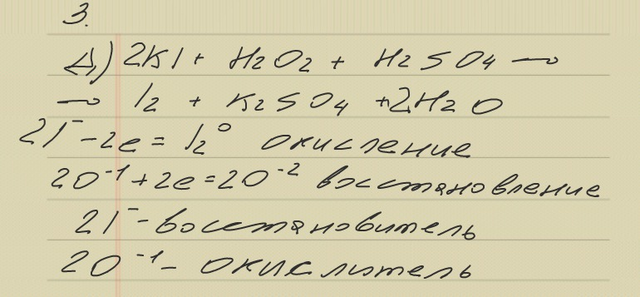 3.
Д) 2KI + H2O2 + H2SO4 →
→ I2 + K2SO4 + 2H2O
2I⁻ - 2e = I2⁰ окисление
2O⁻¹ + 2e = 2O⁻² восстановление
2I⁻ - восстановитель
2O⁻¹ - окислитель